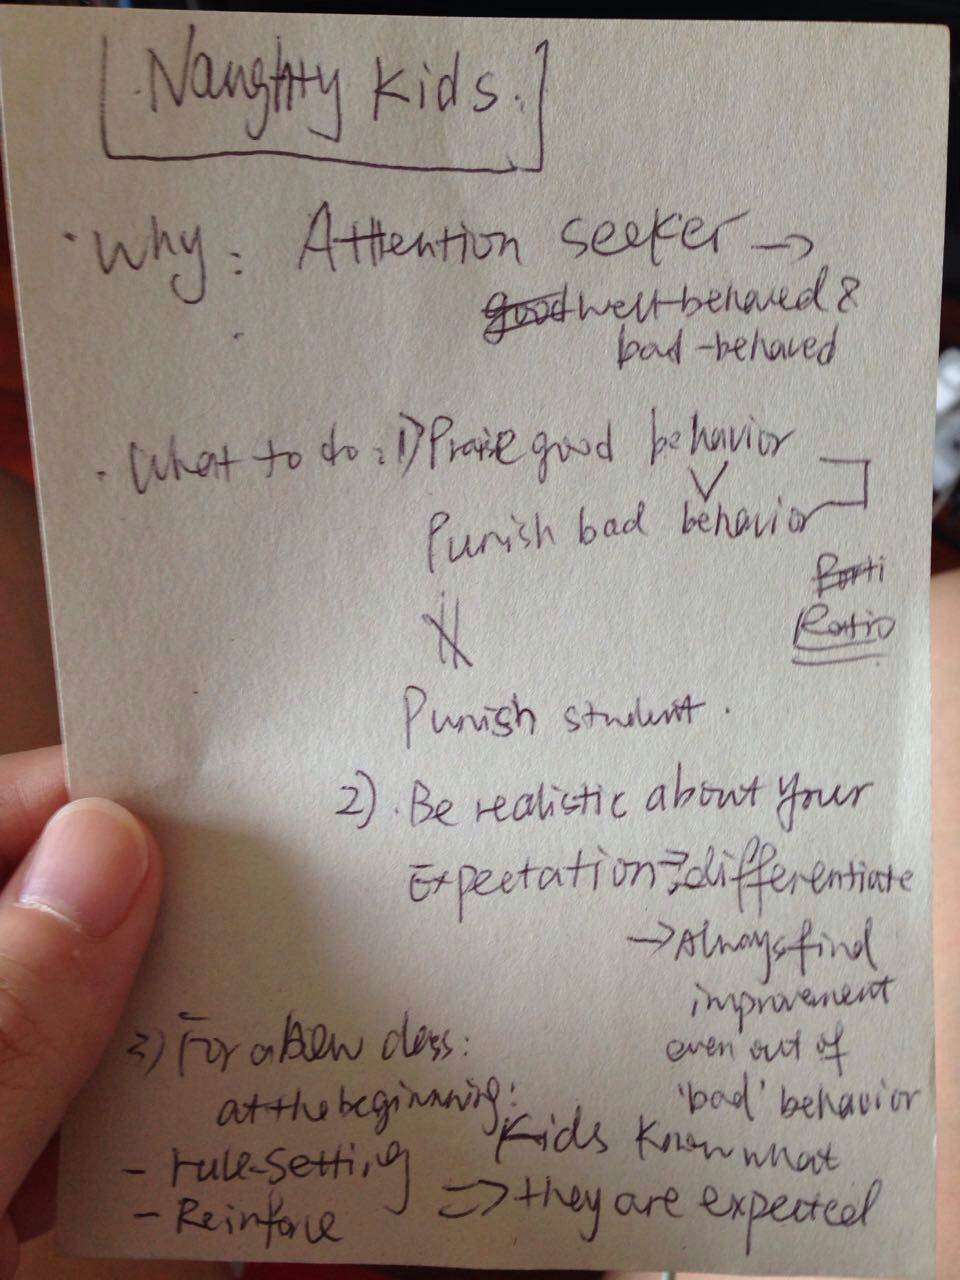 Naughty Kids.
· Why: Attention seeker →
good well-behaved &
bad-behaved
· What to do: 1) Praise good behavior
Punish bad behavior
Porti
Ratio
Punish student.
2). Be realistic about your
Expectation → differentiate
→ Always find
improvement
even out of
'bad' behavior
3) For a new class:
at the beginning:
- rule-setting
- Reinforce
Kids know what
=> they are expected